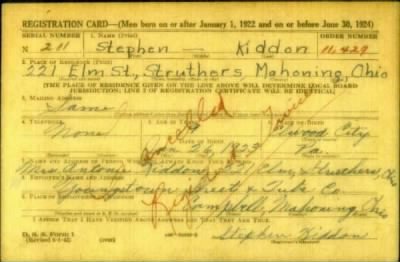 REGISTRATION CARD—(Men born on or after January 1, 1922 and on or before June 30, 1924)
SERIAL NUMBER 1. NAME (Print) ORDER NUMBER
N 211 Stephen — Kiddon 11,429
2. PLACE OF RESIDENCE (Print)
221 Elm St., Struthers, Mahoning, Ohio
(THE PLACE OF RESIDENCE GIVEN ON THE LINE ABOVE WILL DETERMINE LOCAL BOARD
JURISDICTION; LINE 2 OF REGISTRATION CERTIFICATE WILL BE IDENTICAL)
3. MAILING ADDRESS
Same
Cancelled
4. TELEPHONE 5. AGE IN YEARS 6. PLACE OF BIRTH
None City
DATE OF BIRTH
26, 1923 Pa.
7. NAME AND ADDRESS OF PERSON WHO WILL ALWAYS KNOW YOUR ADDRESS
Mrs. Antonia Kiddon, 221 Elm, Struthers, Ohio
8. EMPLOYER'S NAME AND ADDRESS
Youngstown Sheet & Tube Co.
9. PLACE OF EMPLOYMENT OR BUSINESS
Campbell, Mahoning, Ohio
I AFFIRM THAT I HAVE VERIFIED ABOVE ANSWERS AND THAT THEY ARE TRUE.
D. S. S. Form 1
Stephen Kiddon